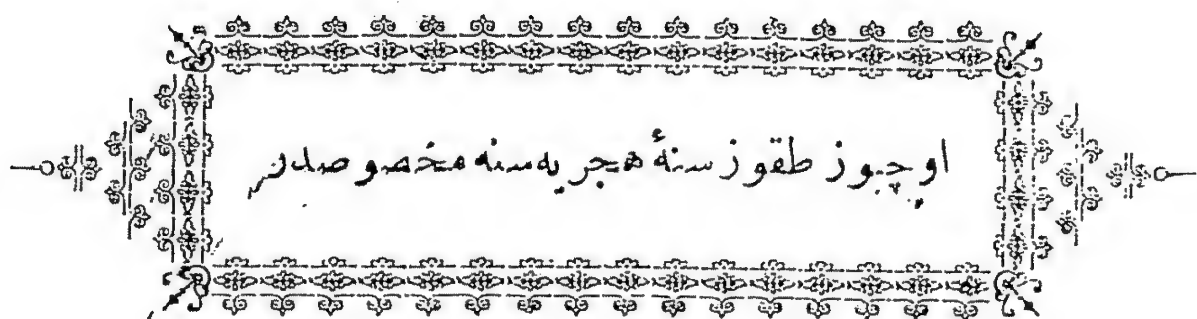 اوچیوز طقوز سنهٔ هجریه‌سنه مخصوصدر